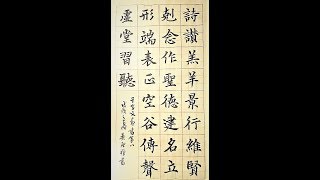 詩讃羔羊景行維賢
剋念作聖德建名立
形端表正空谷傳聲
虛堂習聽
千字文